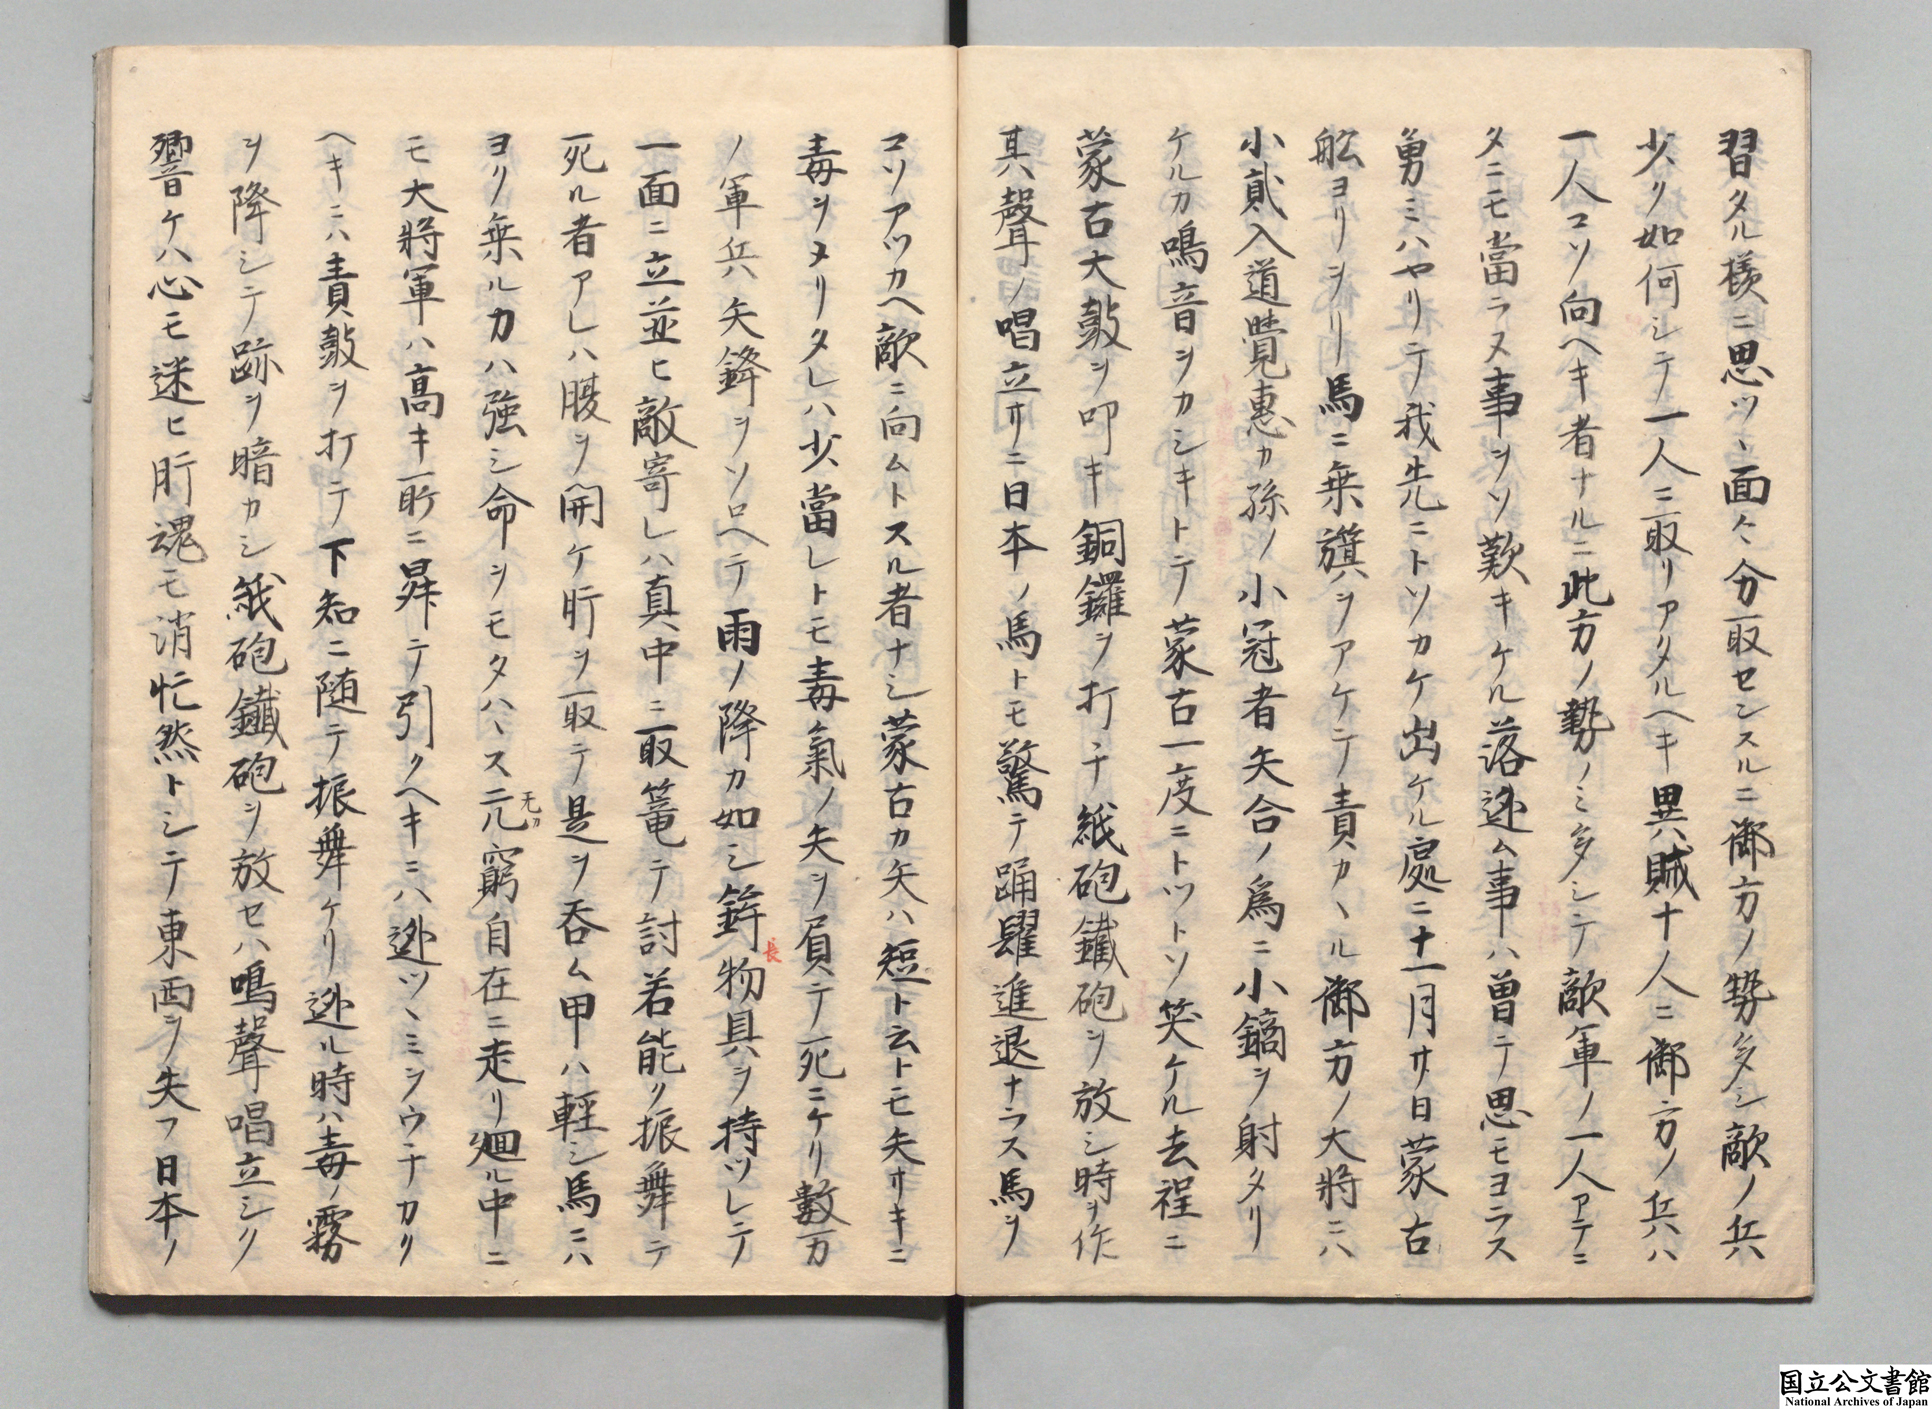 習タル様ニ思ツヽ面〻分取センスルニ御方ノ勢多シ敵ノ兵
少リ如何シテ一人ニ取リアタルヘキ異賊十人ニ御方ノ兵ハ
一人コソ向ヘキ者ナルニ此方ノ勢ノミ多シテ敵軍ノ一人アテニ
タニモ當ラヌ事ヲソ歎キケル落逊ム事ハ曽テ思モヨラス
勇ミハヤリテ我先ニトソカケ出ケル處ニ十一月廿日蒙古
舩ヨリヲリ馬ニ乗旗ヲアケテ責カヽル御方ノ大将ニハ
小貳入道覺惠カ孫ノ小冠者矢合ノ爲ニ小鏑ヲ射タリ
ケルカ鳴音ヲカシキトテ蒙古一度ニトツトソ笑ケル去程ニ
蒙古大皷ヲ叩キ銅鑼ヲ打チ紙砲鐵砲ヲ放シ時ヲ作
其聲ノ唱立サニ日本ノ馬トモ驚テ踊躍進退ナラス馬ヲ
コソアツカヘ敵ニ向ムトスル者ナシ蒙古カ矢ハ短ト云トモ矢サキニ
毒ヲヌリタレハ少當レトモ毒氣ノ矢ヲ屓テ死ニケリ數万
ノ軍兵矢鋒ヲソロヘテ雨ノ降カ如シ鉾長物具ヲ持ツレテ
一面ニ立並ヒ敵寄レハ真中ニ取篭テ討若能ク振舞テ
死ル者アレハ腹ヲ開ケ肝ヲ取テ是ヲ呑ム甲ハ輕シ馬ニハ
ヨリ乗ルカハ強シ命ヲモタハヽス元窮自在ニ走リ廻ル中ニ
无カ
モ大將軍ハ高キ所ニ昇テ引クヘキニハ逊ツヽミヲウチカリ
ヘキニハ責皷ヲ打テ下知ニ随テ振舞ケリ逊ル時ハ毒ノ霧
ヲ降シテ跡ヲ暗カシ紙砲鐵砲ヲ放セハ鳴聲唱立シク
響ケハ心モ迷ヒ肝魂モ消忙然トシテ東西ヲ失フ日本ノ
国立公文書館
National Archives of Japan